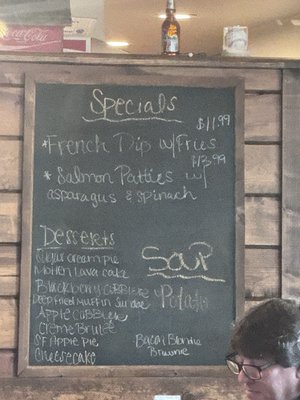 Coca-Cola
Specials
$11.99
*French Dip w/Fries
$13.99
* Salmon Patties w/
asparagus & spinach
Desserts
cream pie
Molten Lava cake
Blackberry Cobbler
Deep Fried Muffin Sundae
Apple Cobbler
Creme Brulee
SF Apple Pie
Cheesecake
Soup
Potato
Bacai Blondie
Brownie